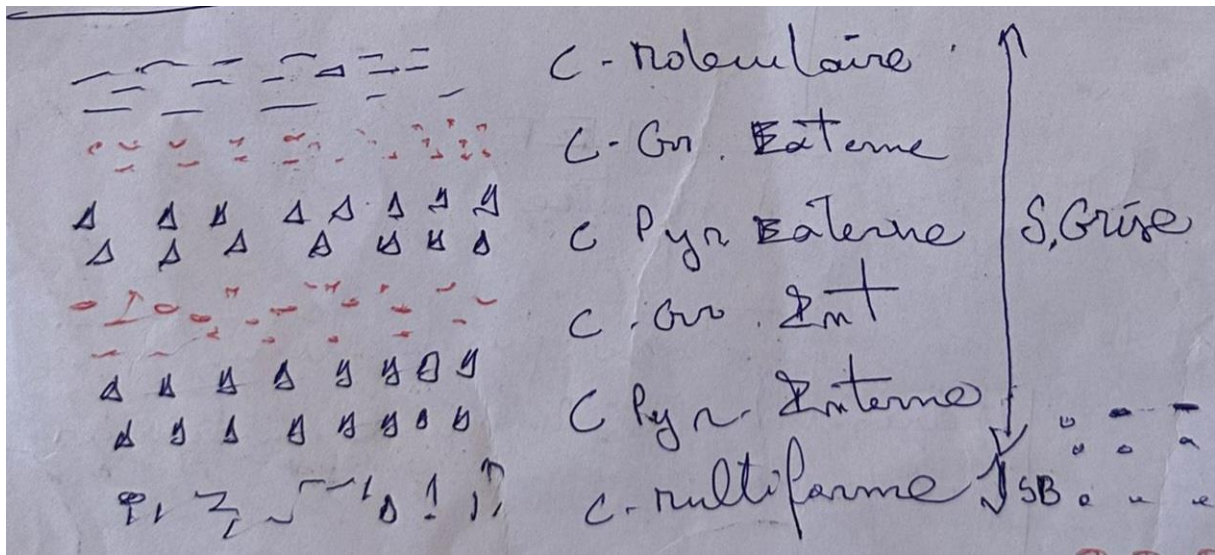 C - Moleculaire
C - Gr. Externe
C Pyr Externe
S, Grise
C - Gr. Int
C Pyr - Interne
C - multiforme SB